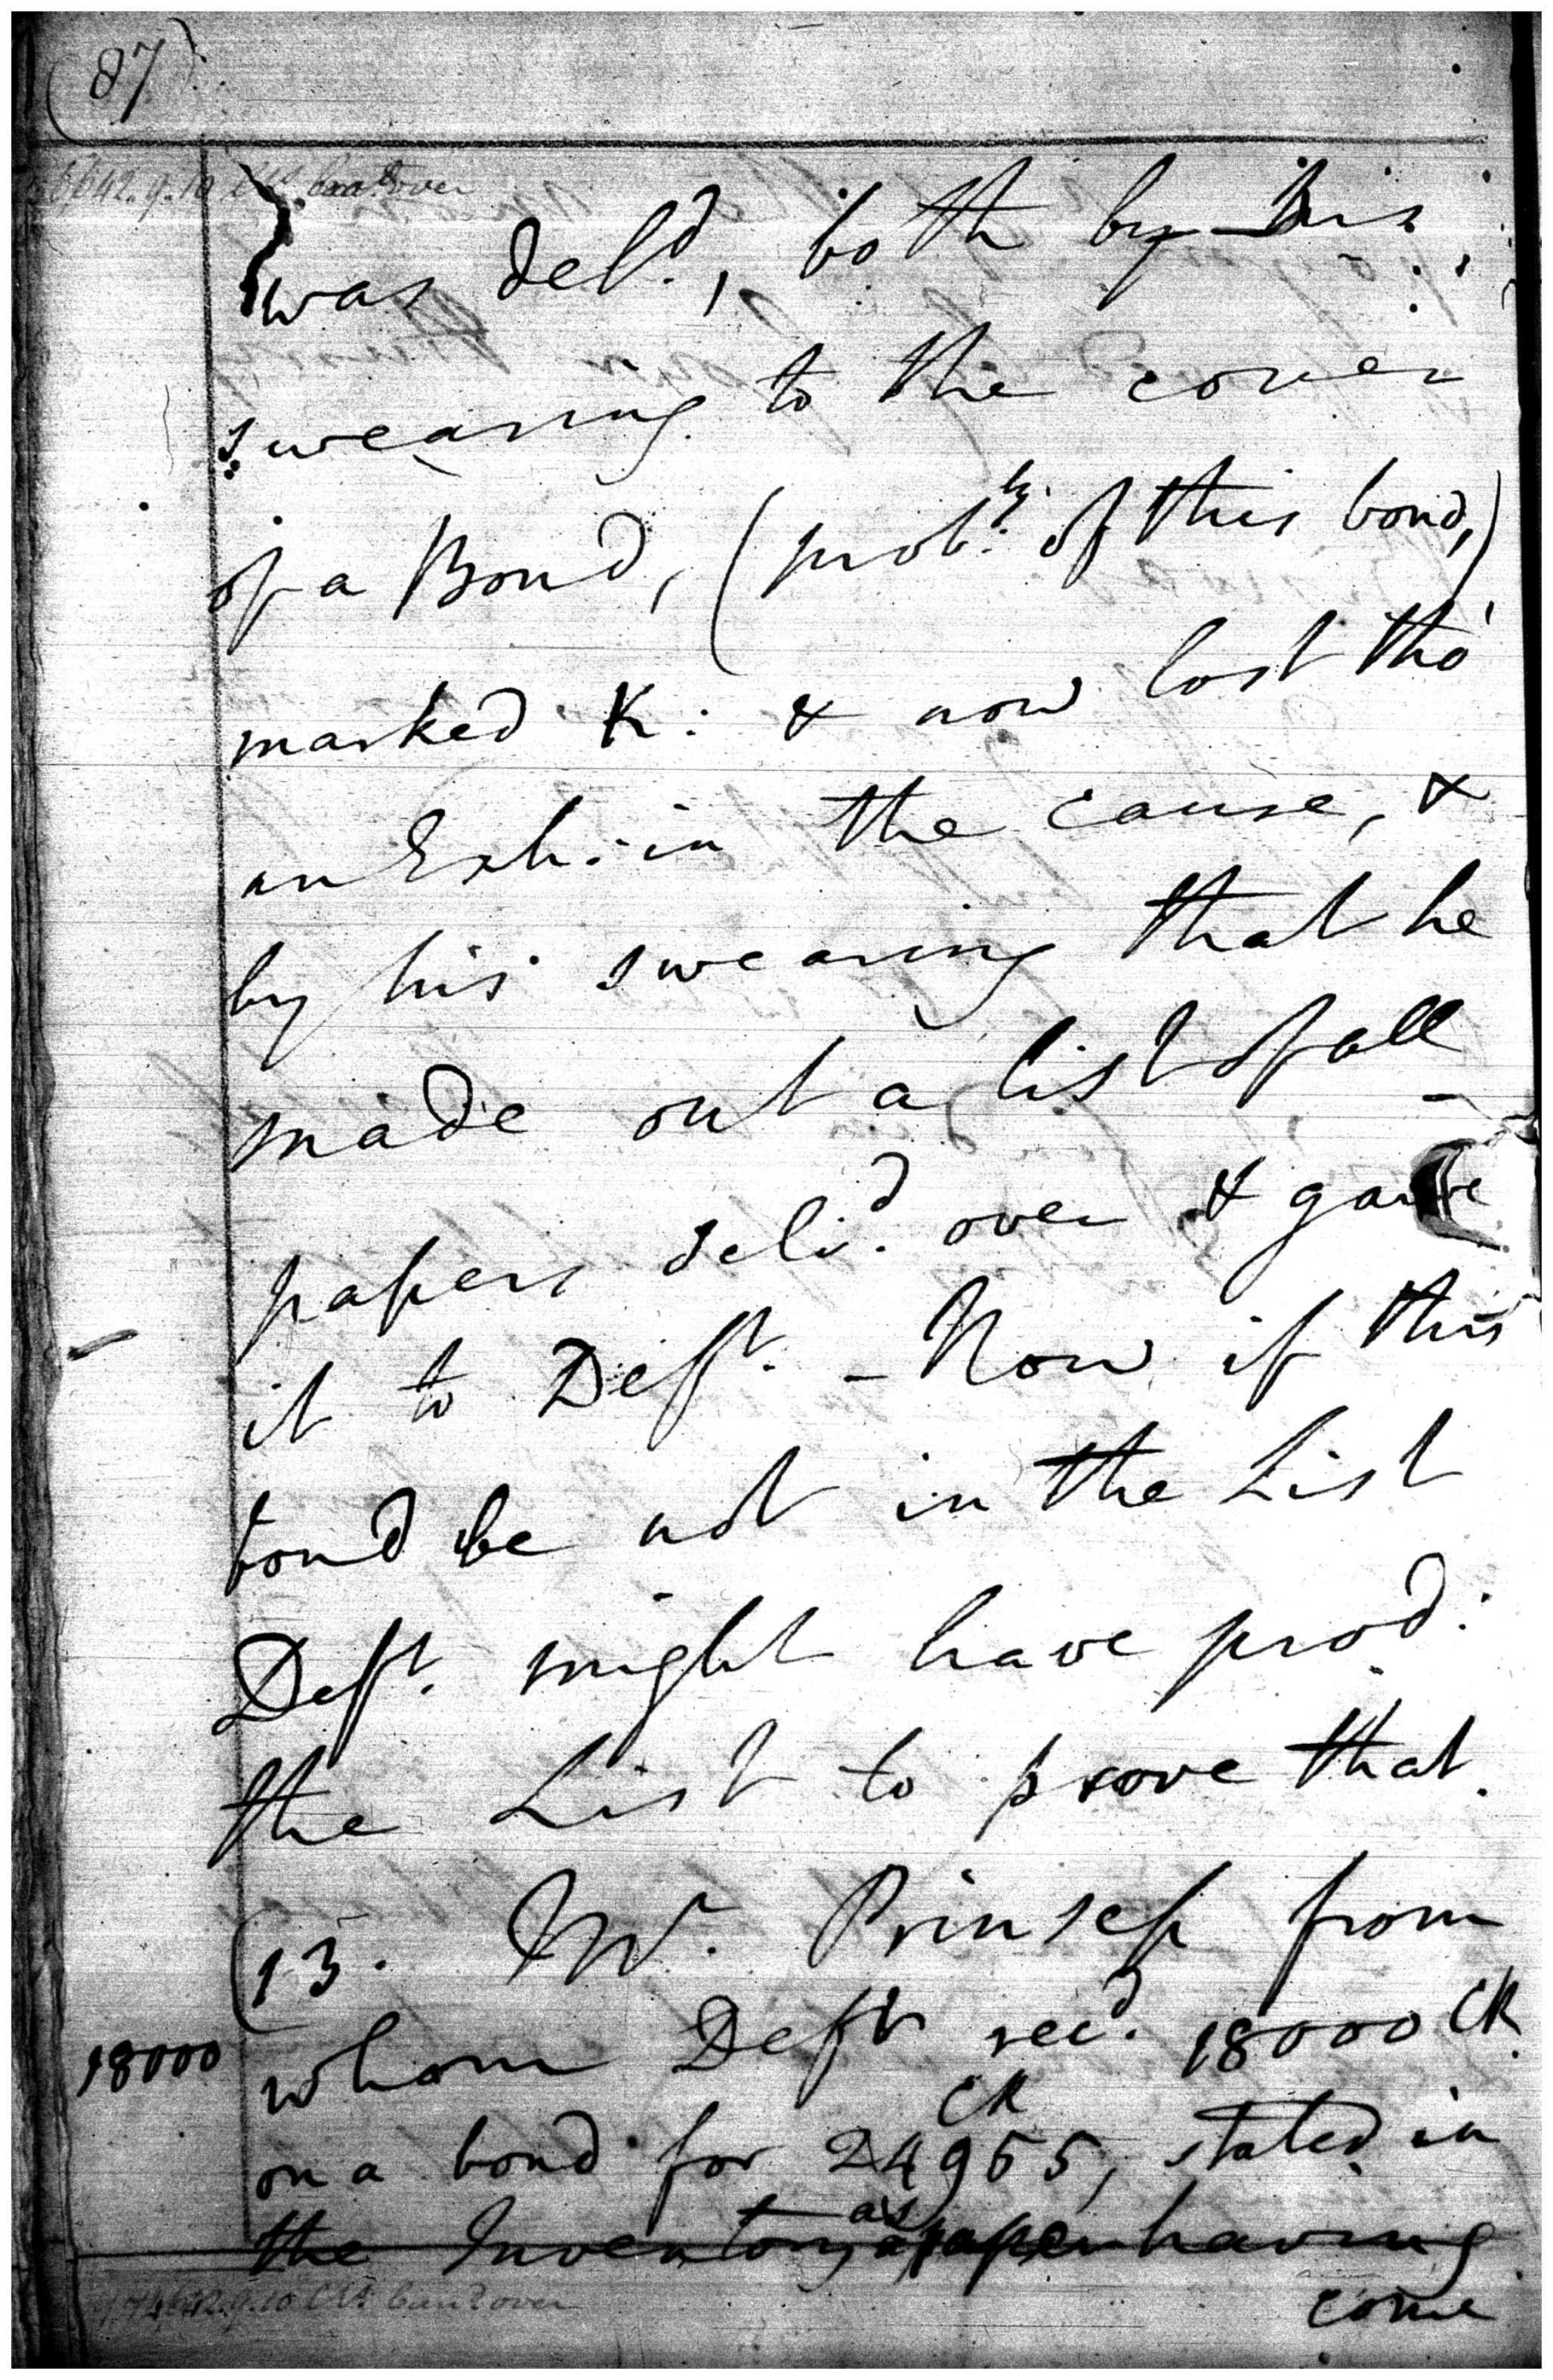 (87)
was del.d, both by his
swearing to the cover
of a Bond, (prob.ly of this bond,)
marked K: & now lost tho'
an Exh: in the cause, &
by his swearing that he
made out a list of all
papers deliv.d over & gave
it to Deft. - Now if this
bond be not in the List
Deft. might have prod:
the List to prove that.
(13. Mr. Prinsep from
18000 whom Deft rec.d 18000 CR.
on a bond for 24955 CR, stated in
the Inventory as a paper having
come